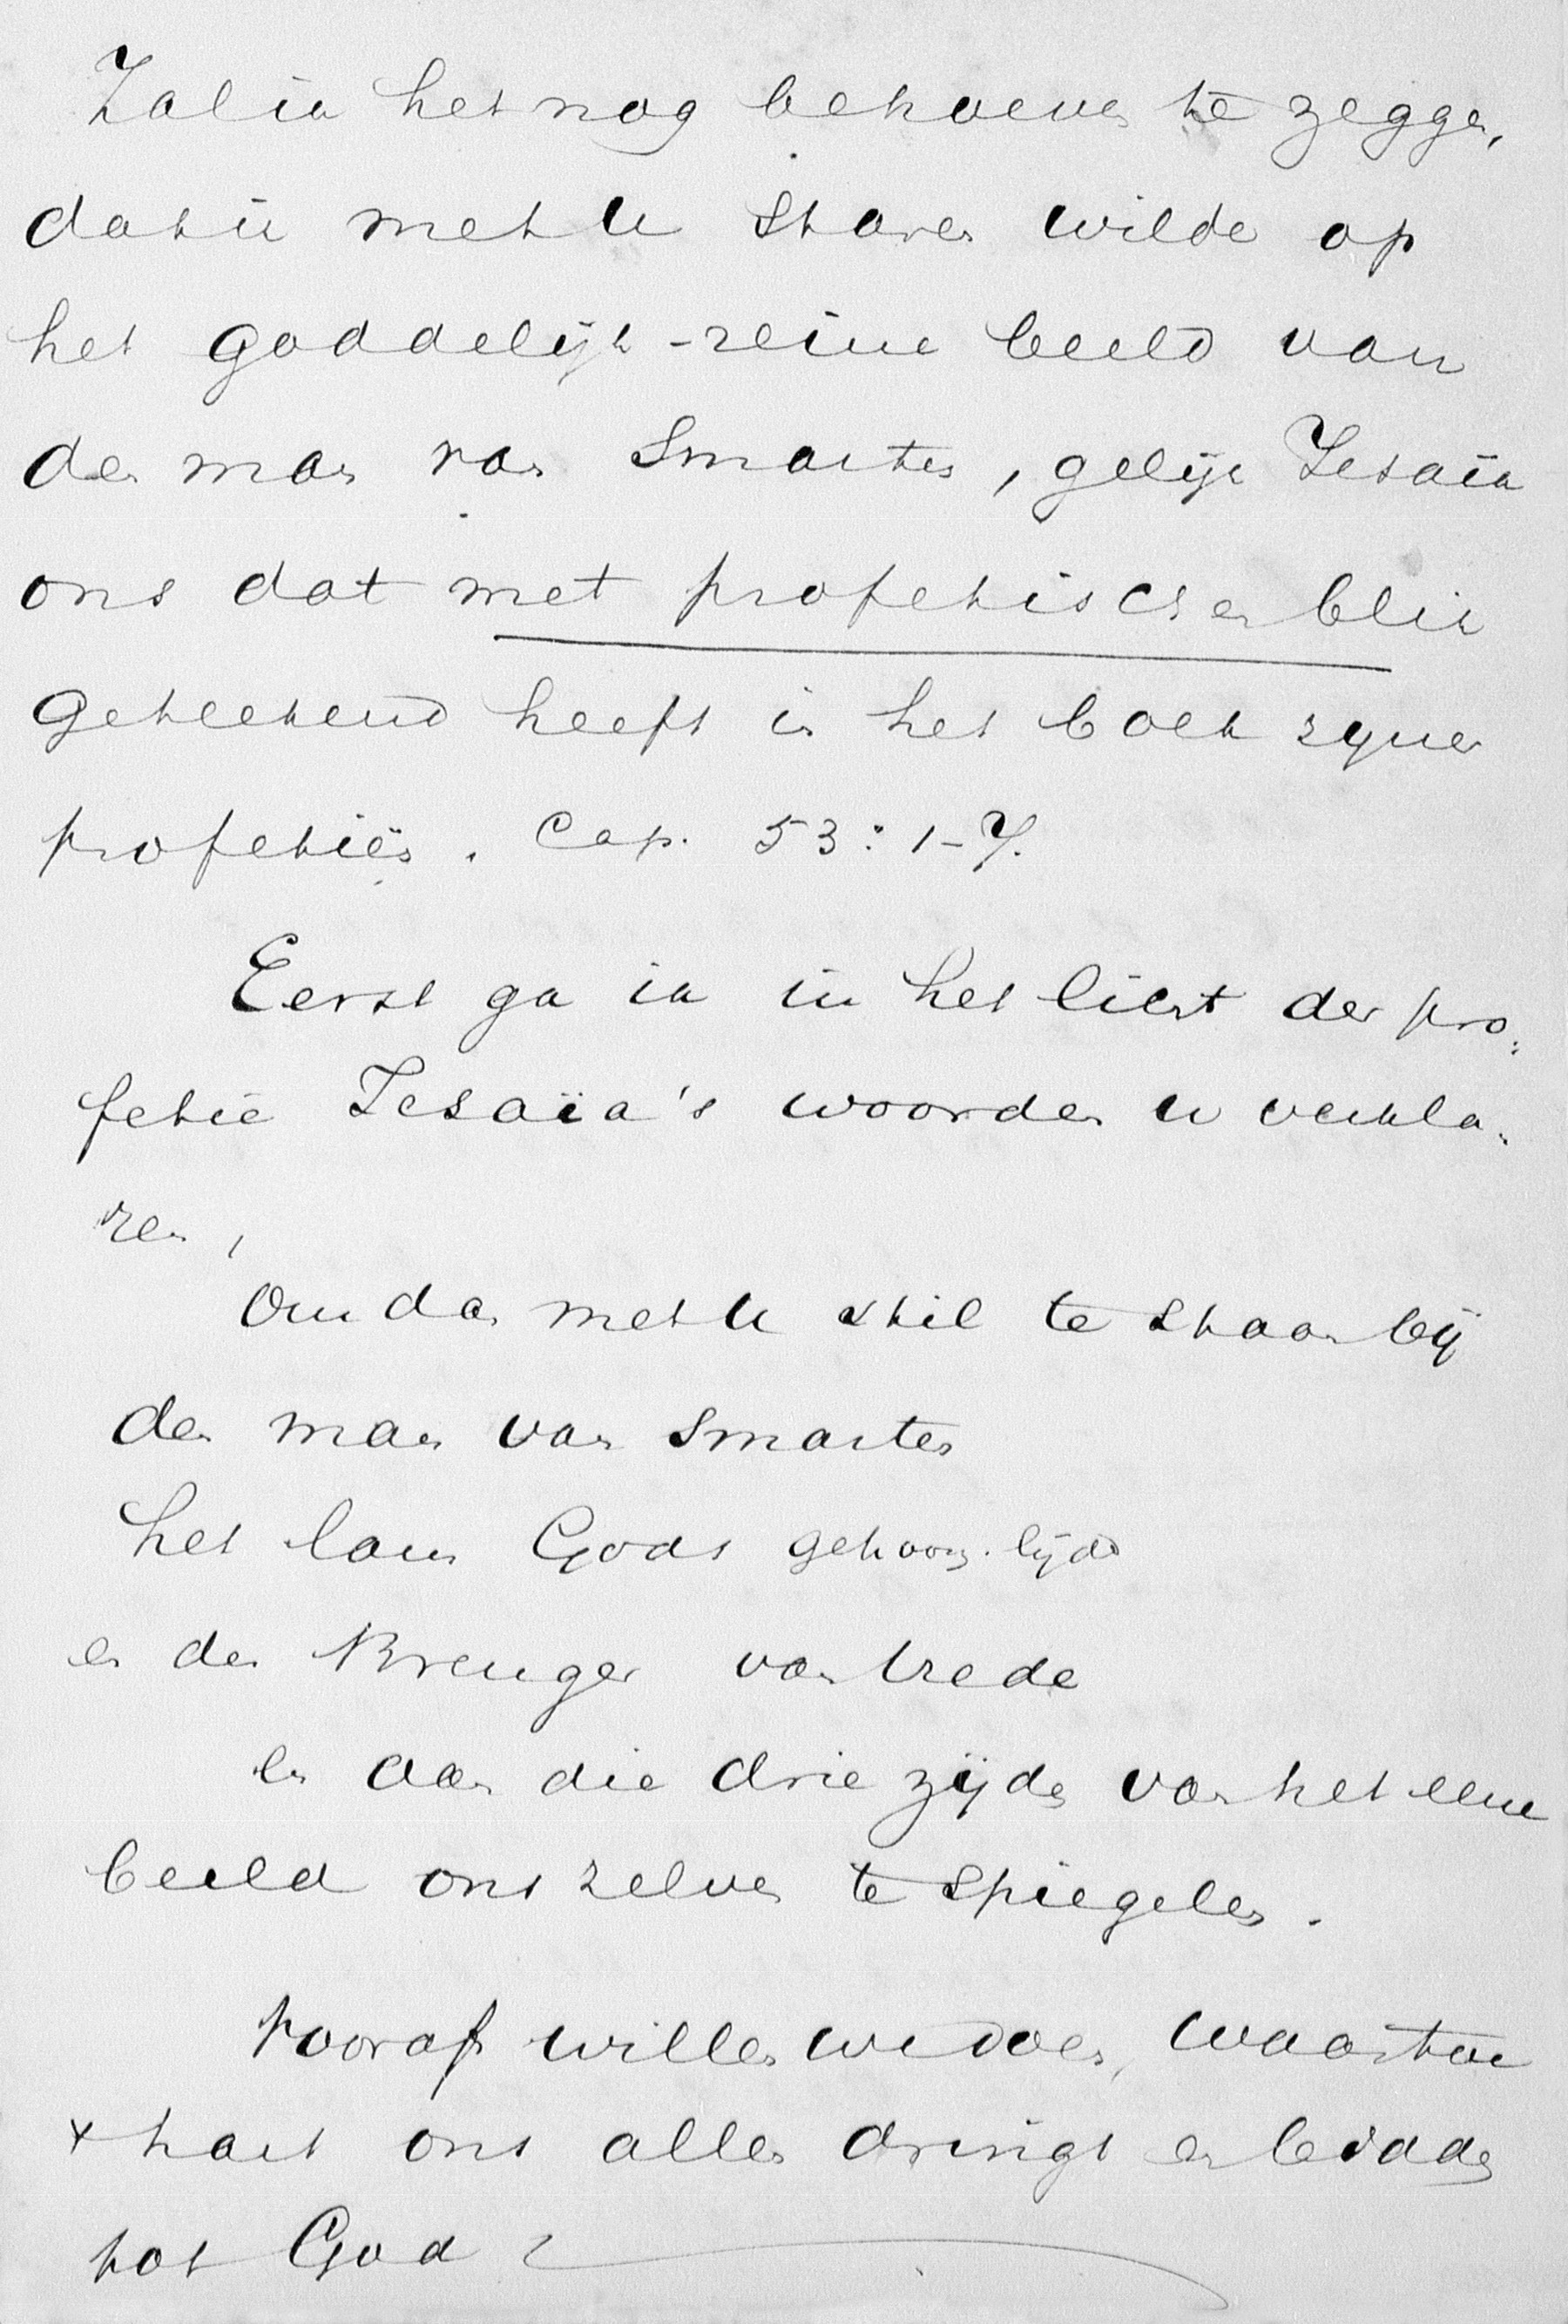 Zal ik het nog behoeven te zeggen,
dat ik met U staren wilde op
het goddelijk-reine beeld van
den man van Smarten, gelijk Jesaïa
ons dat met profetischen blik
geteekend heeft in het boek zyner
profetiën. Cap. 53:1-7.
Eerst ga ik in het licht der pro:
fetie Jesaïa's woorden u verkla:
ren,
Om dan met U stil te staan bij
den man van Smarten
het lam Gods gehoorz. lijdd
en den Brenger van vrede
en aan die drie zijden van het eene
beeld ons zelven te spiegelen.
Vooraf willen we doen, waartoe
't hart ons allen dringt en bidden
tot God